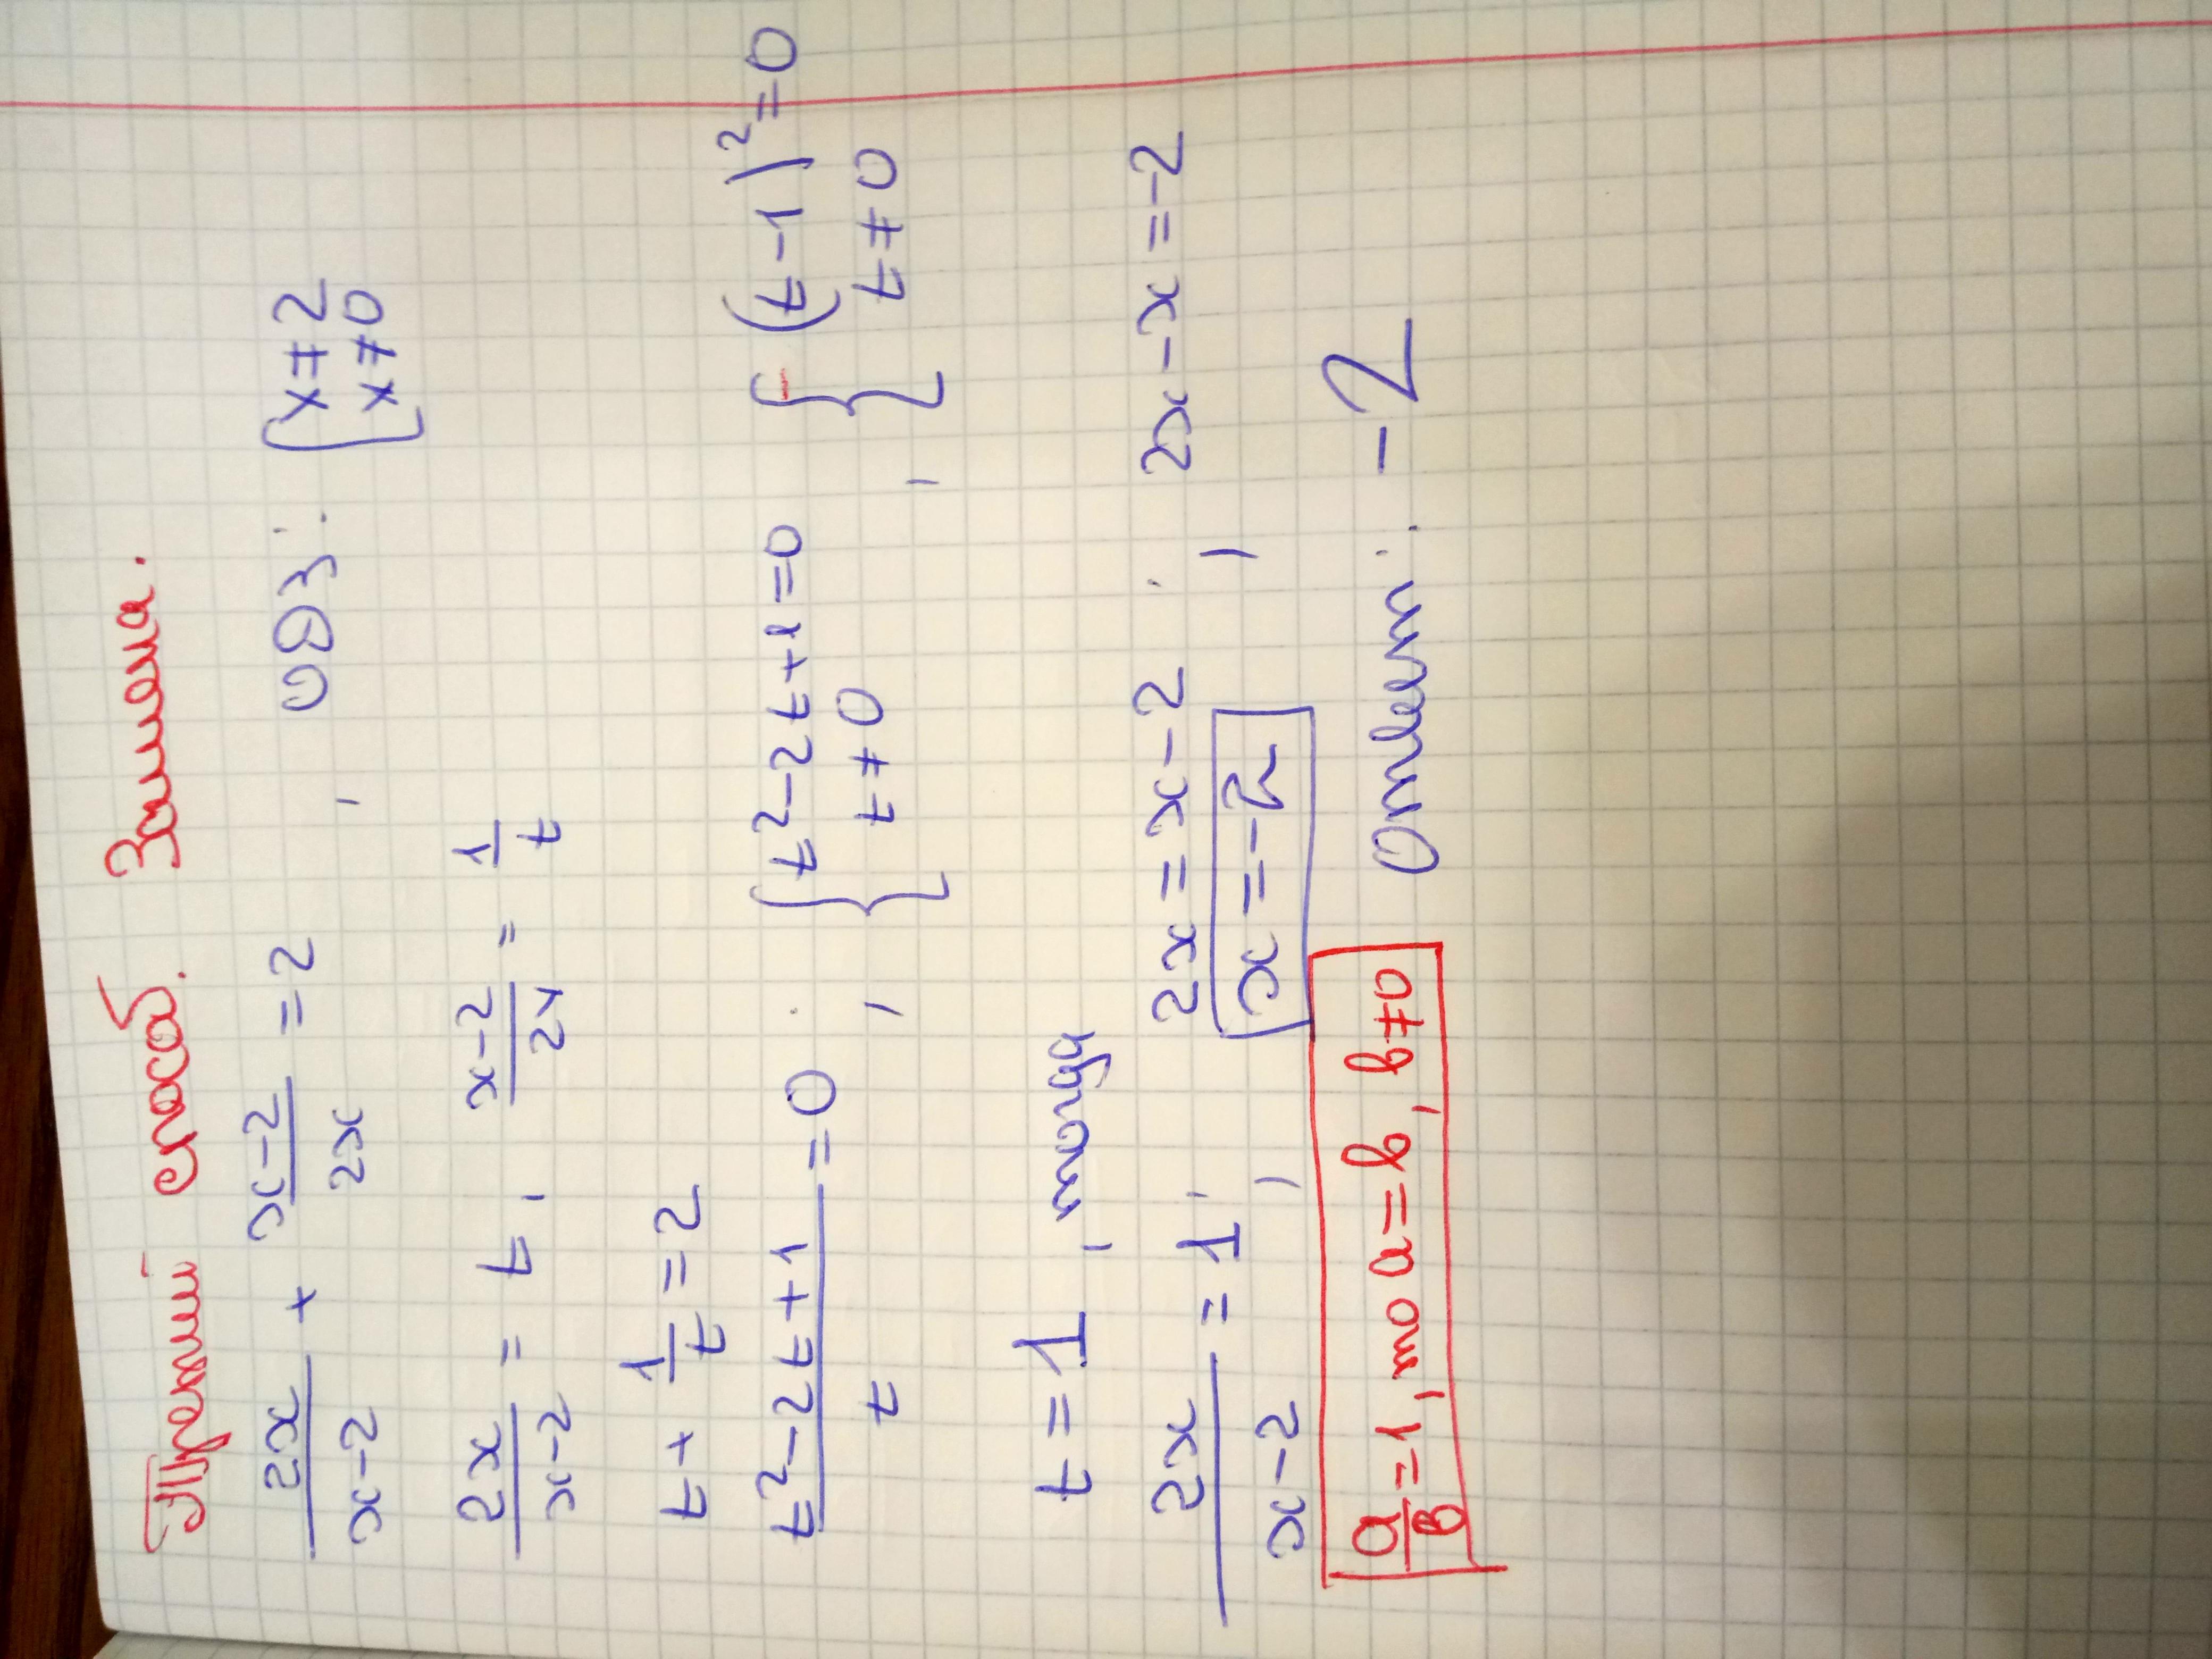 Третий способ. Замена.
2x/(x-2) + (x-2)/2x = 2 , ОДЗ: { x≠2
x≠0
2x/(x-2) = t , (x-2)/2x = 1/t
t + 1/t = 2
(t²-2t+1)/t = 0 , { t²-2t+1=0 , { (t-1)²=0
t≠0 t≠0
t=1 , тогда
2x/(x-2) = 1 ; 2x=x-2 ; 2x-x=-2
x=-2
a/в=1, то a=в, в≠0 Ответ: -2